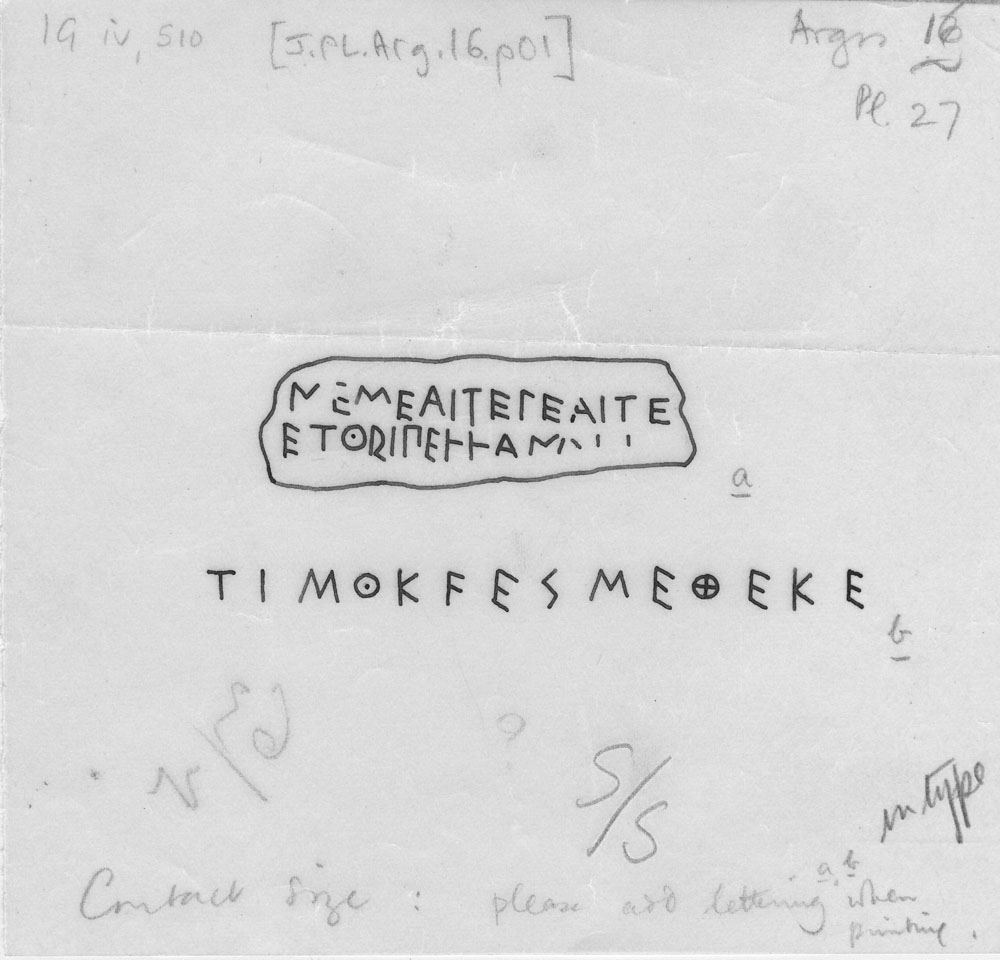 IG iv, 510 [J.PL.Arg.16.p01] Argos 16
Pl. 27
ΝΕΜΕΑΙΤΕΓΕΑΙΤΕ
ΕΤΟRΙΠΕͰͰΑΜ
a
ΤΙΜΟΚϜΕSΜΕΘΕΚΕ
b
S/S
in type
Contact size : please add lettering a, b when
printing.